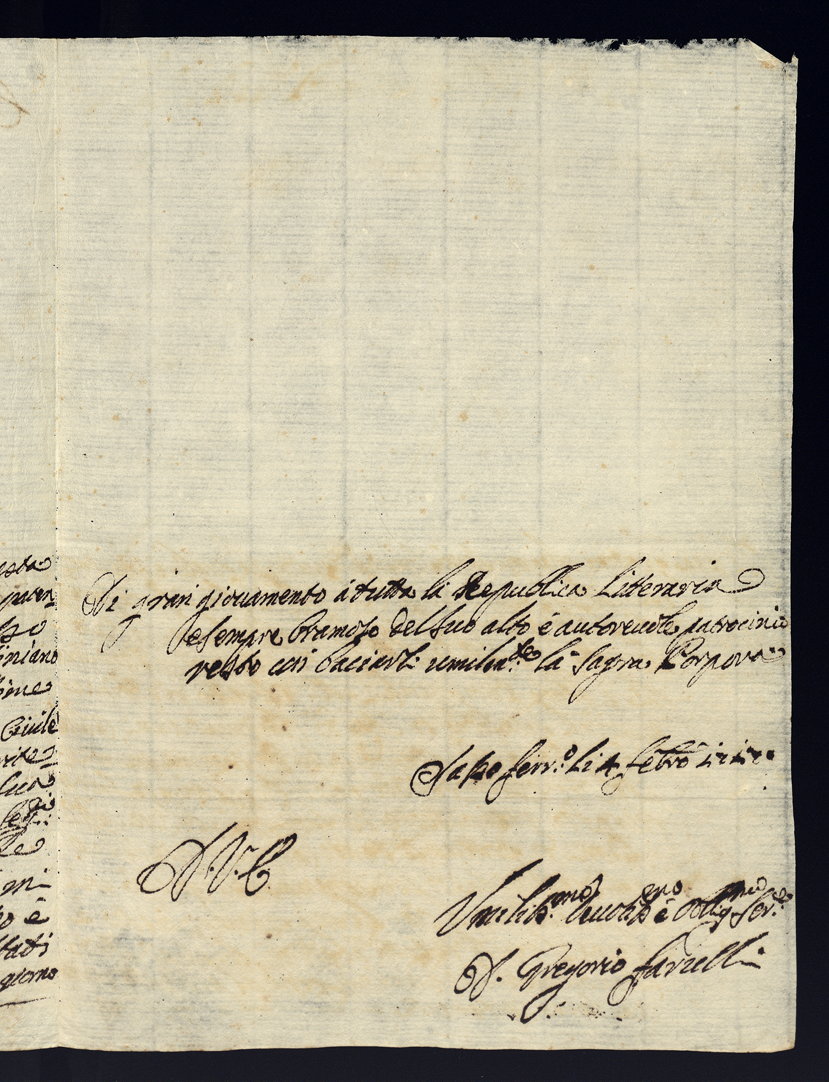 esta
paten
so
iniano
ime
Civile
rite
Luca
mi
o è
stati
giorno
Di gran giovamento à tutta la Republica Litteraria
e sempre bramoso del suo alto è autorevole patrocinio
resto con baciarli umilm.te la Sagra Porpora
Sasso ferr.o li 4 Febro
D. V. E.
Umiliss.mo devotis.mo è oblig.mo Ser.e
D. Gregorio